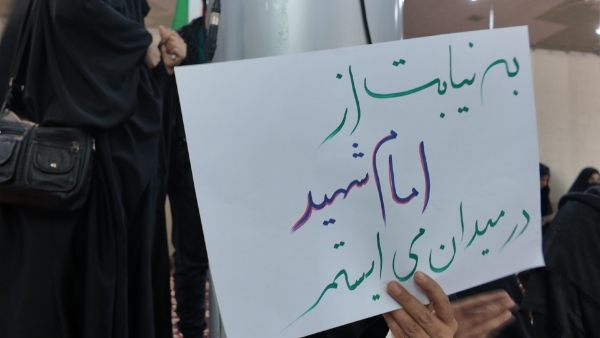 به نیابت از
امام شهید
در میدان می ایستم